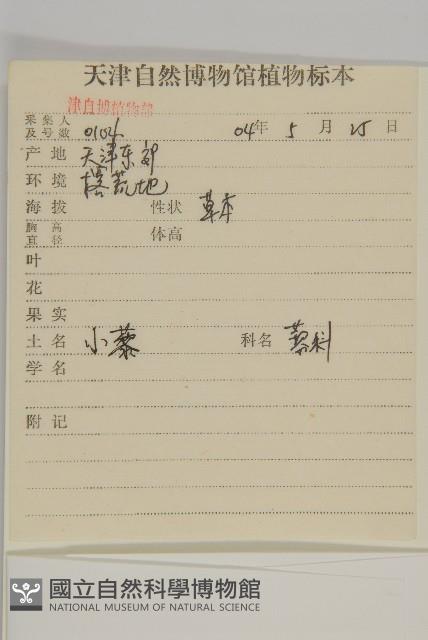 天津自然博物馆植物标本
津自博植物部
采集人及号数 0104 04年 5 月 25 日
产地 天津东郊
环境 荒地
海拔 性状 草本
胸高直径 体高
叶
花
果实
土名 小藜 科名 藜科
学名
附记
國立自然科學博物館
NATIONAL MUSEUM OF NATURAL SCIENCE